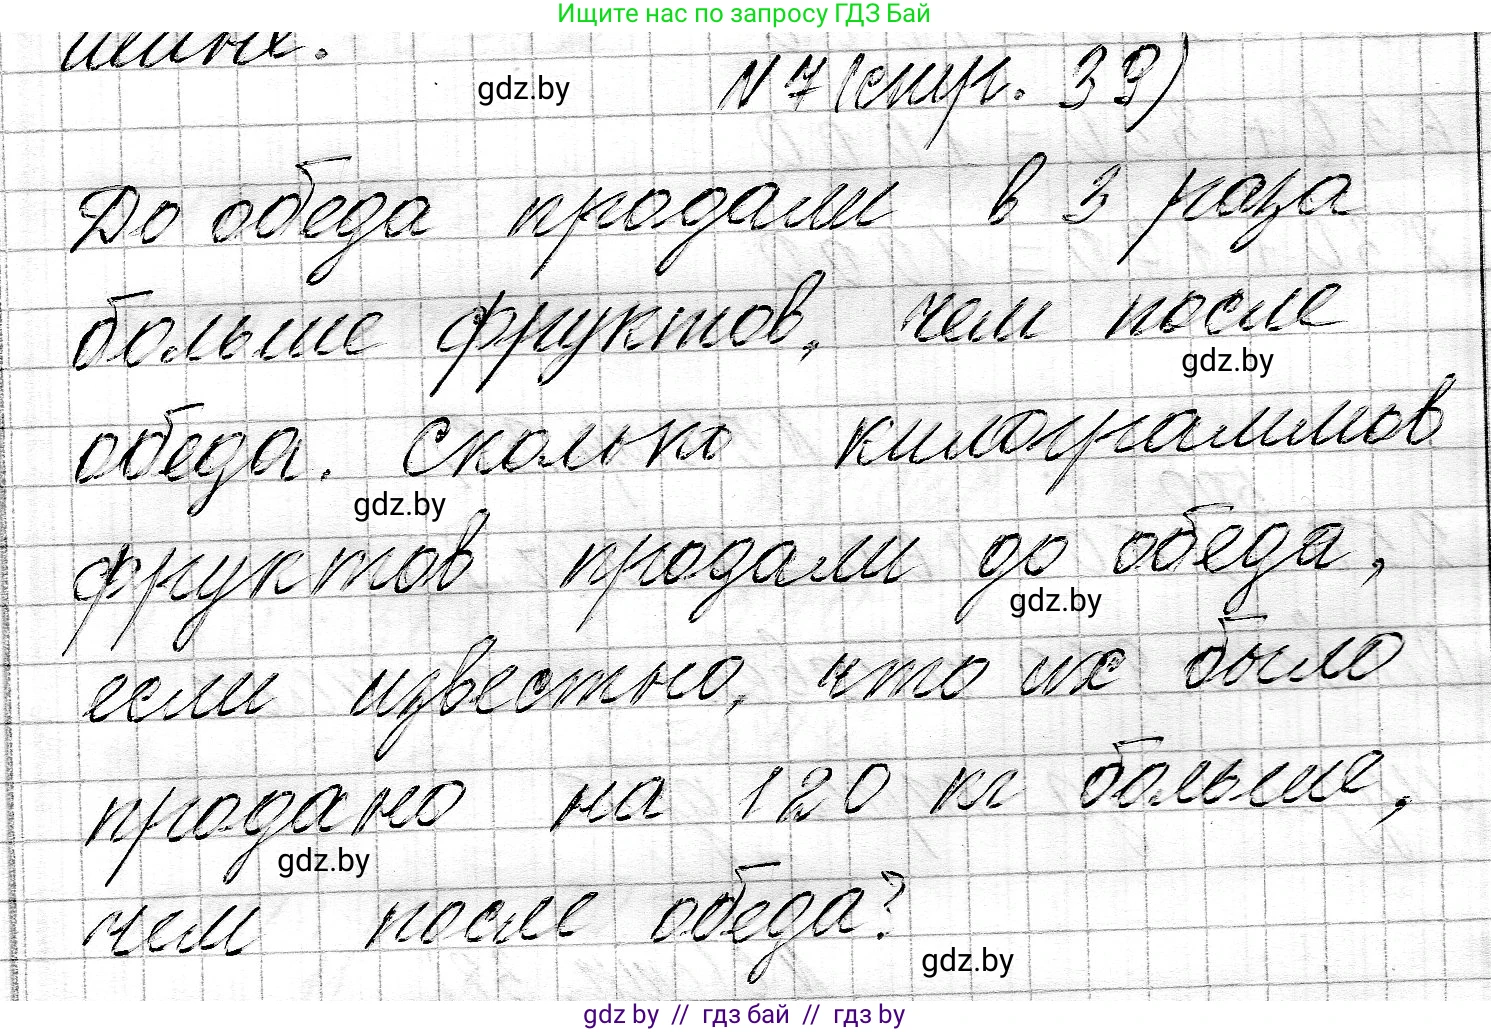 Ищите нас по запросу ГДЗ Бай
gdz.by
№ 7 (стр. 39)
До обеда продали в 3 раза
больше фруктов, чем после
gdz.by
обеда. Сколько килограммов
gdz.by
фруктов продали до обеда,
gdz.by
если известно, что их было
продано на 120 кг больше,
gdz.by
чем после обеда?
gdz.by
gdz.by // гдз бай // гдз by